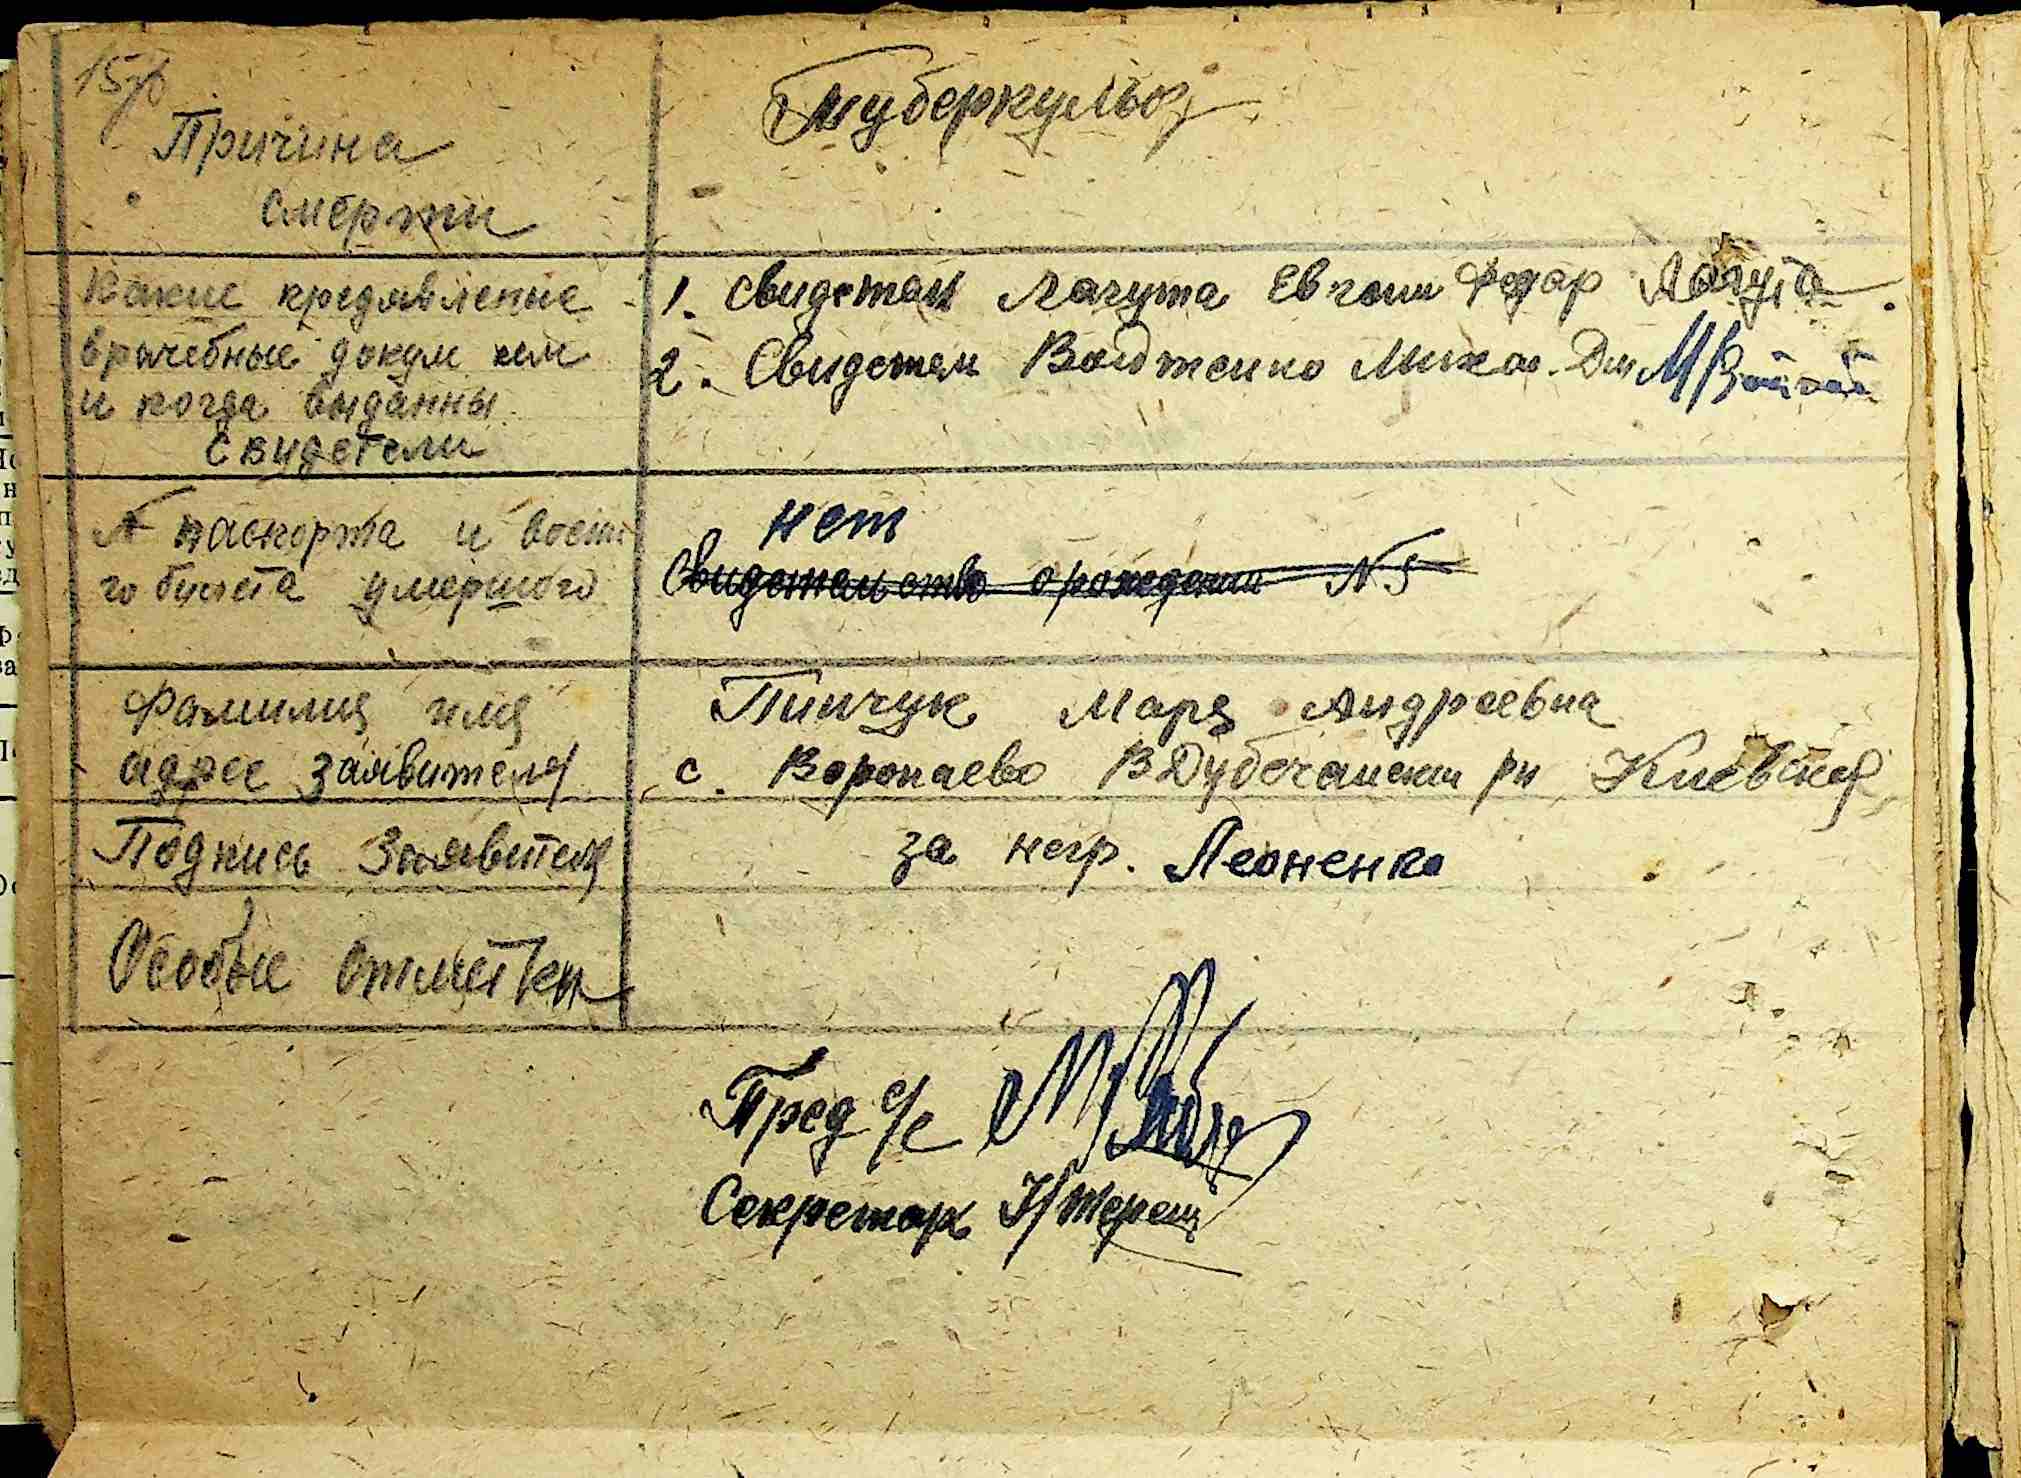 15
Причина
смерти
Туберкульоз
Какие предявление
врачебные докум кем
и когда выданны
Свидетели
1. свидетели Лагута Евгени Федар Лагута
2. Свидетели Михал. Дм
№ паспорта и воен
го билета умершого
нет
Свидетельство о рождении № 5
Фамилия имя
адрес заявителя
Пинчук Маря Андреевна
с. Воропаево В Дубечански рн Киевской
Подпись Заявителя
за негр. Леоненко
Особые отметки
Пред с/с
Секретарь